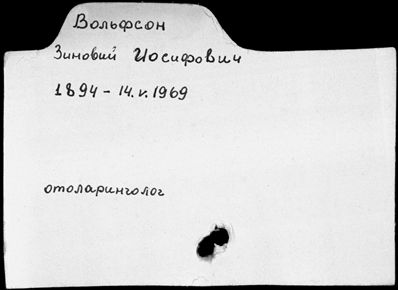 Вольфсон
Зиновий Иосифович
1894 - 14.V.1969
отоларинголог